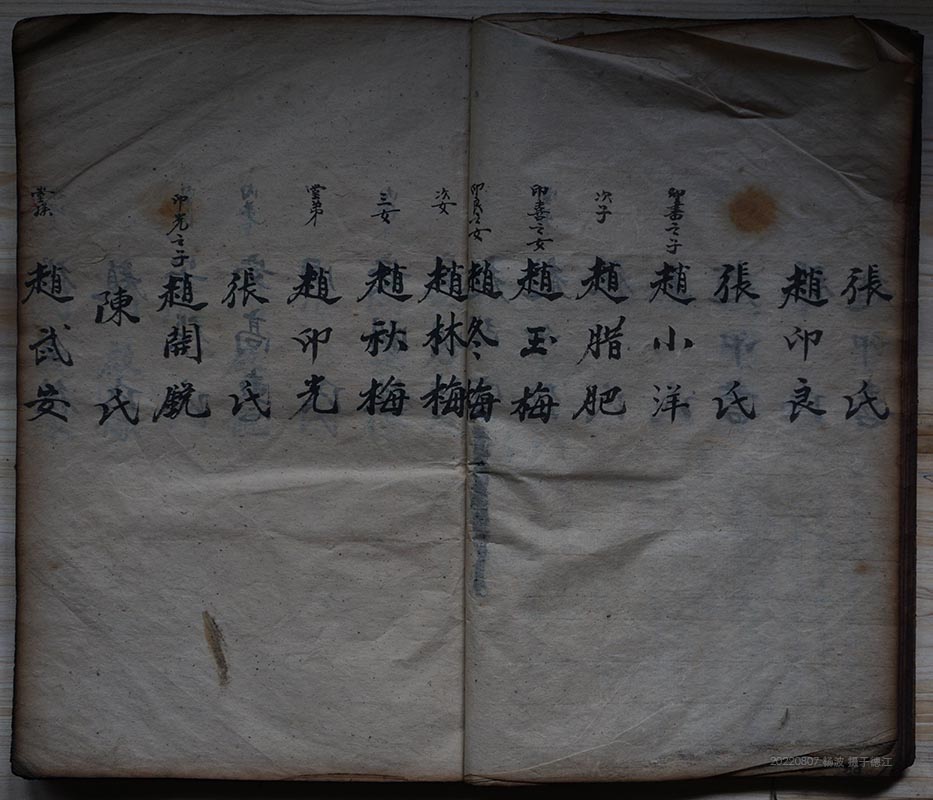 張氏
趙卯良
張氏
卯書之子
趙小洋
次子
趙腊肥
卯喜之女
趙玉梅
卯良之女
趙冬梅
次女
趙林梅
三女
趙秋梅
堂弟
趙卯光
張氏
卯光之子
趙開銳
陳氏
堂孫
趙武安
20220807 杨波 摄于德江